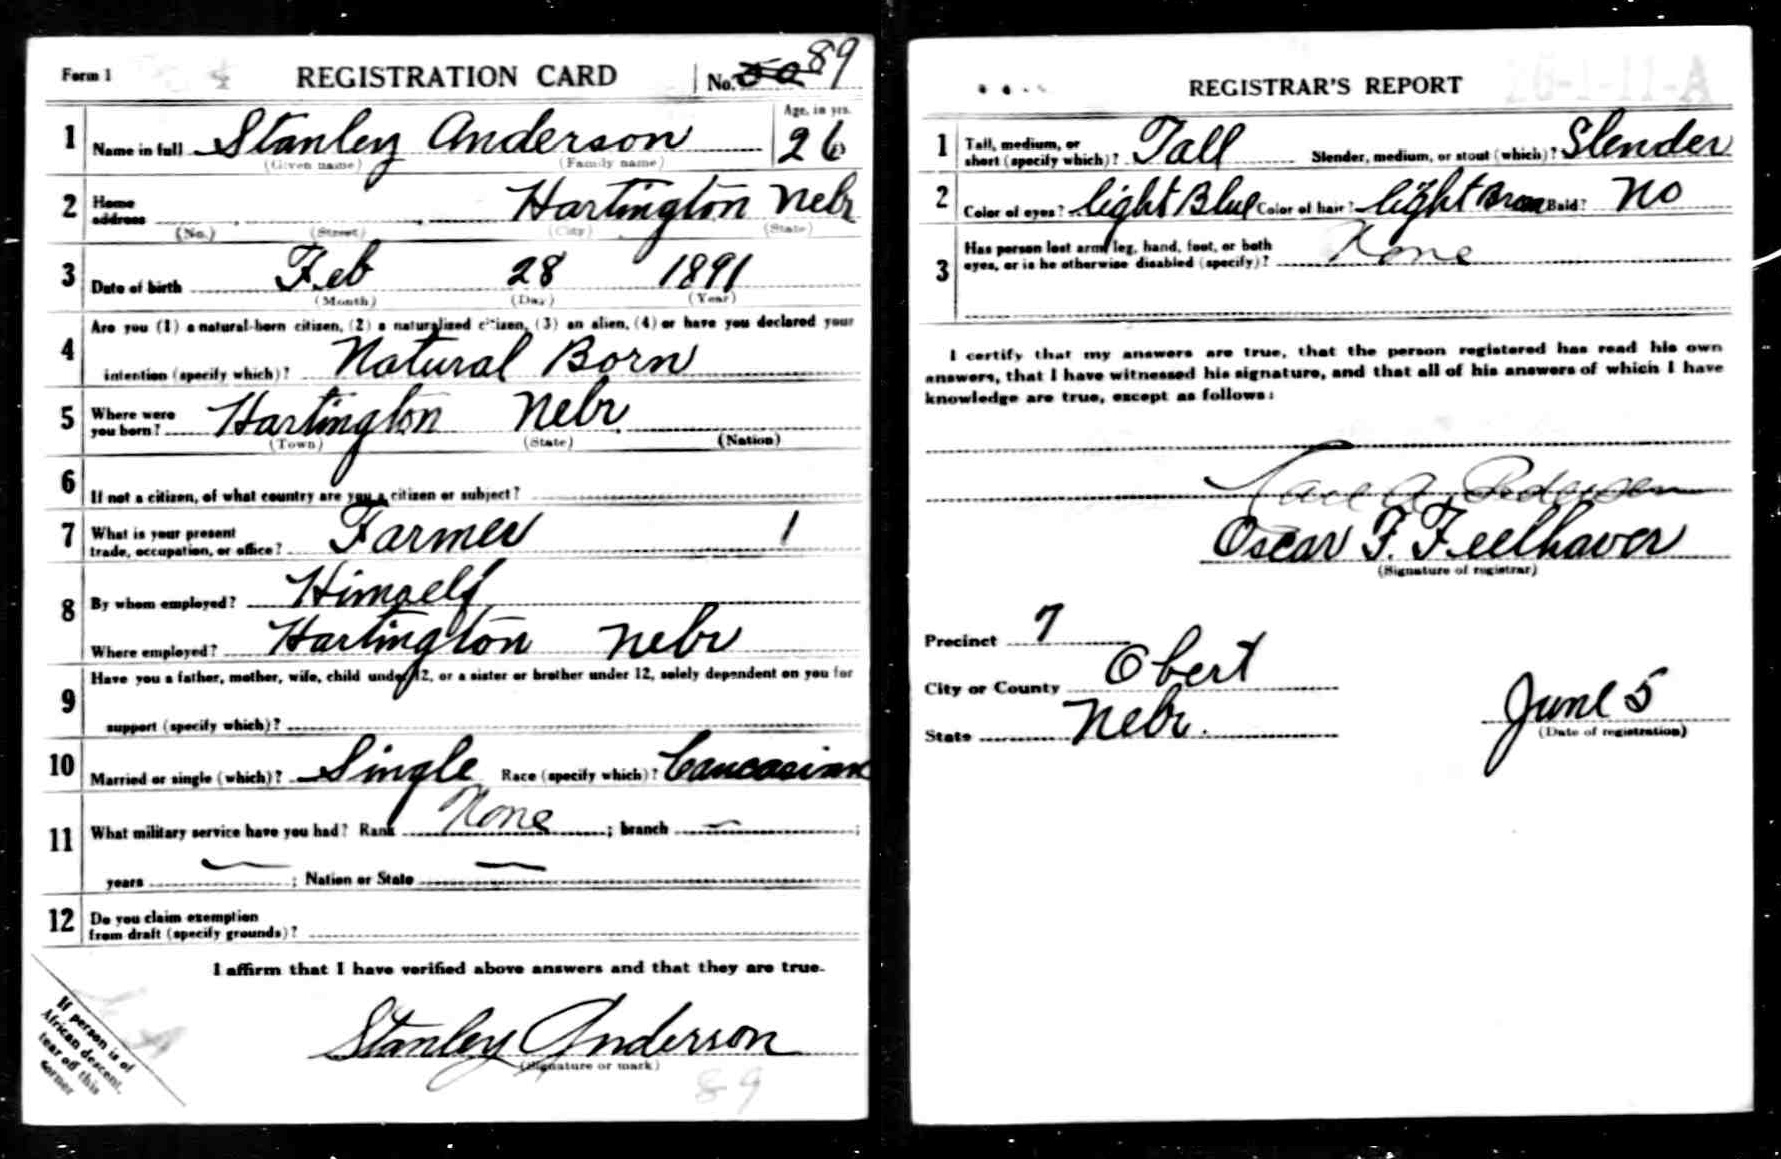 Form 1 REGISTRATION CARD No. 89
1 Name in full Stanley Anderson Age, in yrs. 26
(Given name) (Family name)
2 Home address Hartington Nebr
(No.) (Street) (City) (State)
3 Date of birth Feb 28 1891
(Month) (Day) (Year)
Are you (1) a natural-born citizen, (2) a naturalized citizen, (3) an alien, (4) or have you declared your
4 intention (specify which)? Natural Born
5 Where were you born? Hartington Nebr
(Town) (State) (Nation)
6 If not a citizen, of what country are you a citizen or subject?
7 What is your present trade, occupation, or office? Farmer 1
8 By whom employed? Himself
Where employed? Hartington Nebr
Have you a father, mother, wife, child under 12, or a sister or brother under 12, solely dependent on you for
9 support (specify which)?
10 Married or single (which)? Single Race (specify which)? Caucasian
11 What military service have you had? Rank None ; branch — ;
years — ; Nation or State —
12 Do you claim exemption from draft (specify grounds)?
I affirm that I have verified above answers and that they are true.
Stanley Anderson
(Signature or mark)
89
If person is of
African descent,
tear off this
corner
26-1-11-A
REGISTRAR'S REPORT
1 Tall, medium, or short (specify which)? Tall Slender, medium, or stout (which)? Slender
2 Color of eyes? light Blue Color of hair? light Brown Bald? No
3 Has person lost arm, leg, hand, foot, or both eyes, or is he otherwise disabled (specify)? None
I certify that my answers are true, that the person registered has read his own
answers, that I have witnessed his signature, and that all of his answers of which I have
knowledge are true, except as follows:
Oscar F. Feelhaver
(Signature of registrar)
Precinct 7
City or County Obert
State Nebr.
June 5
(Date of registration)